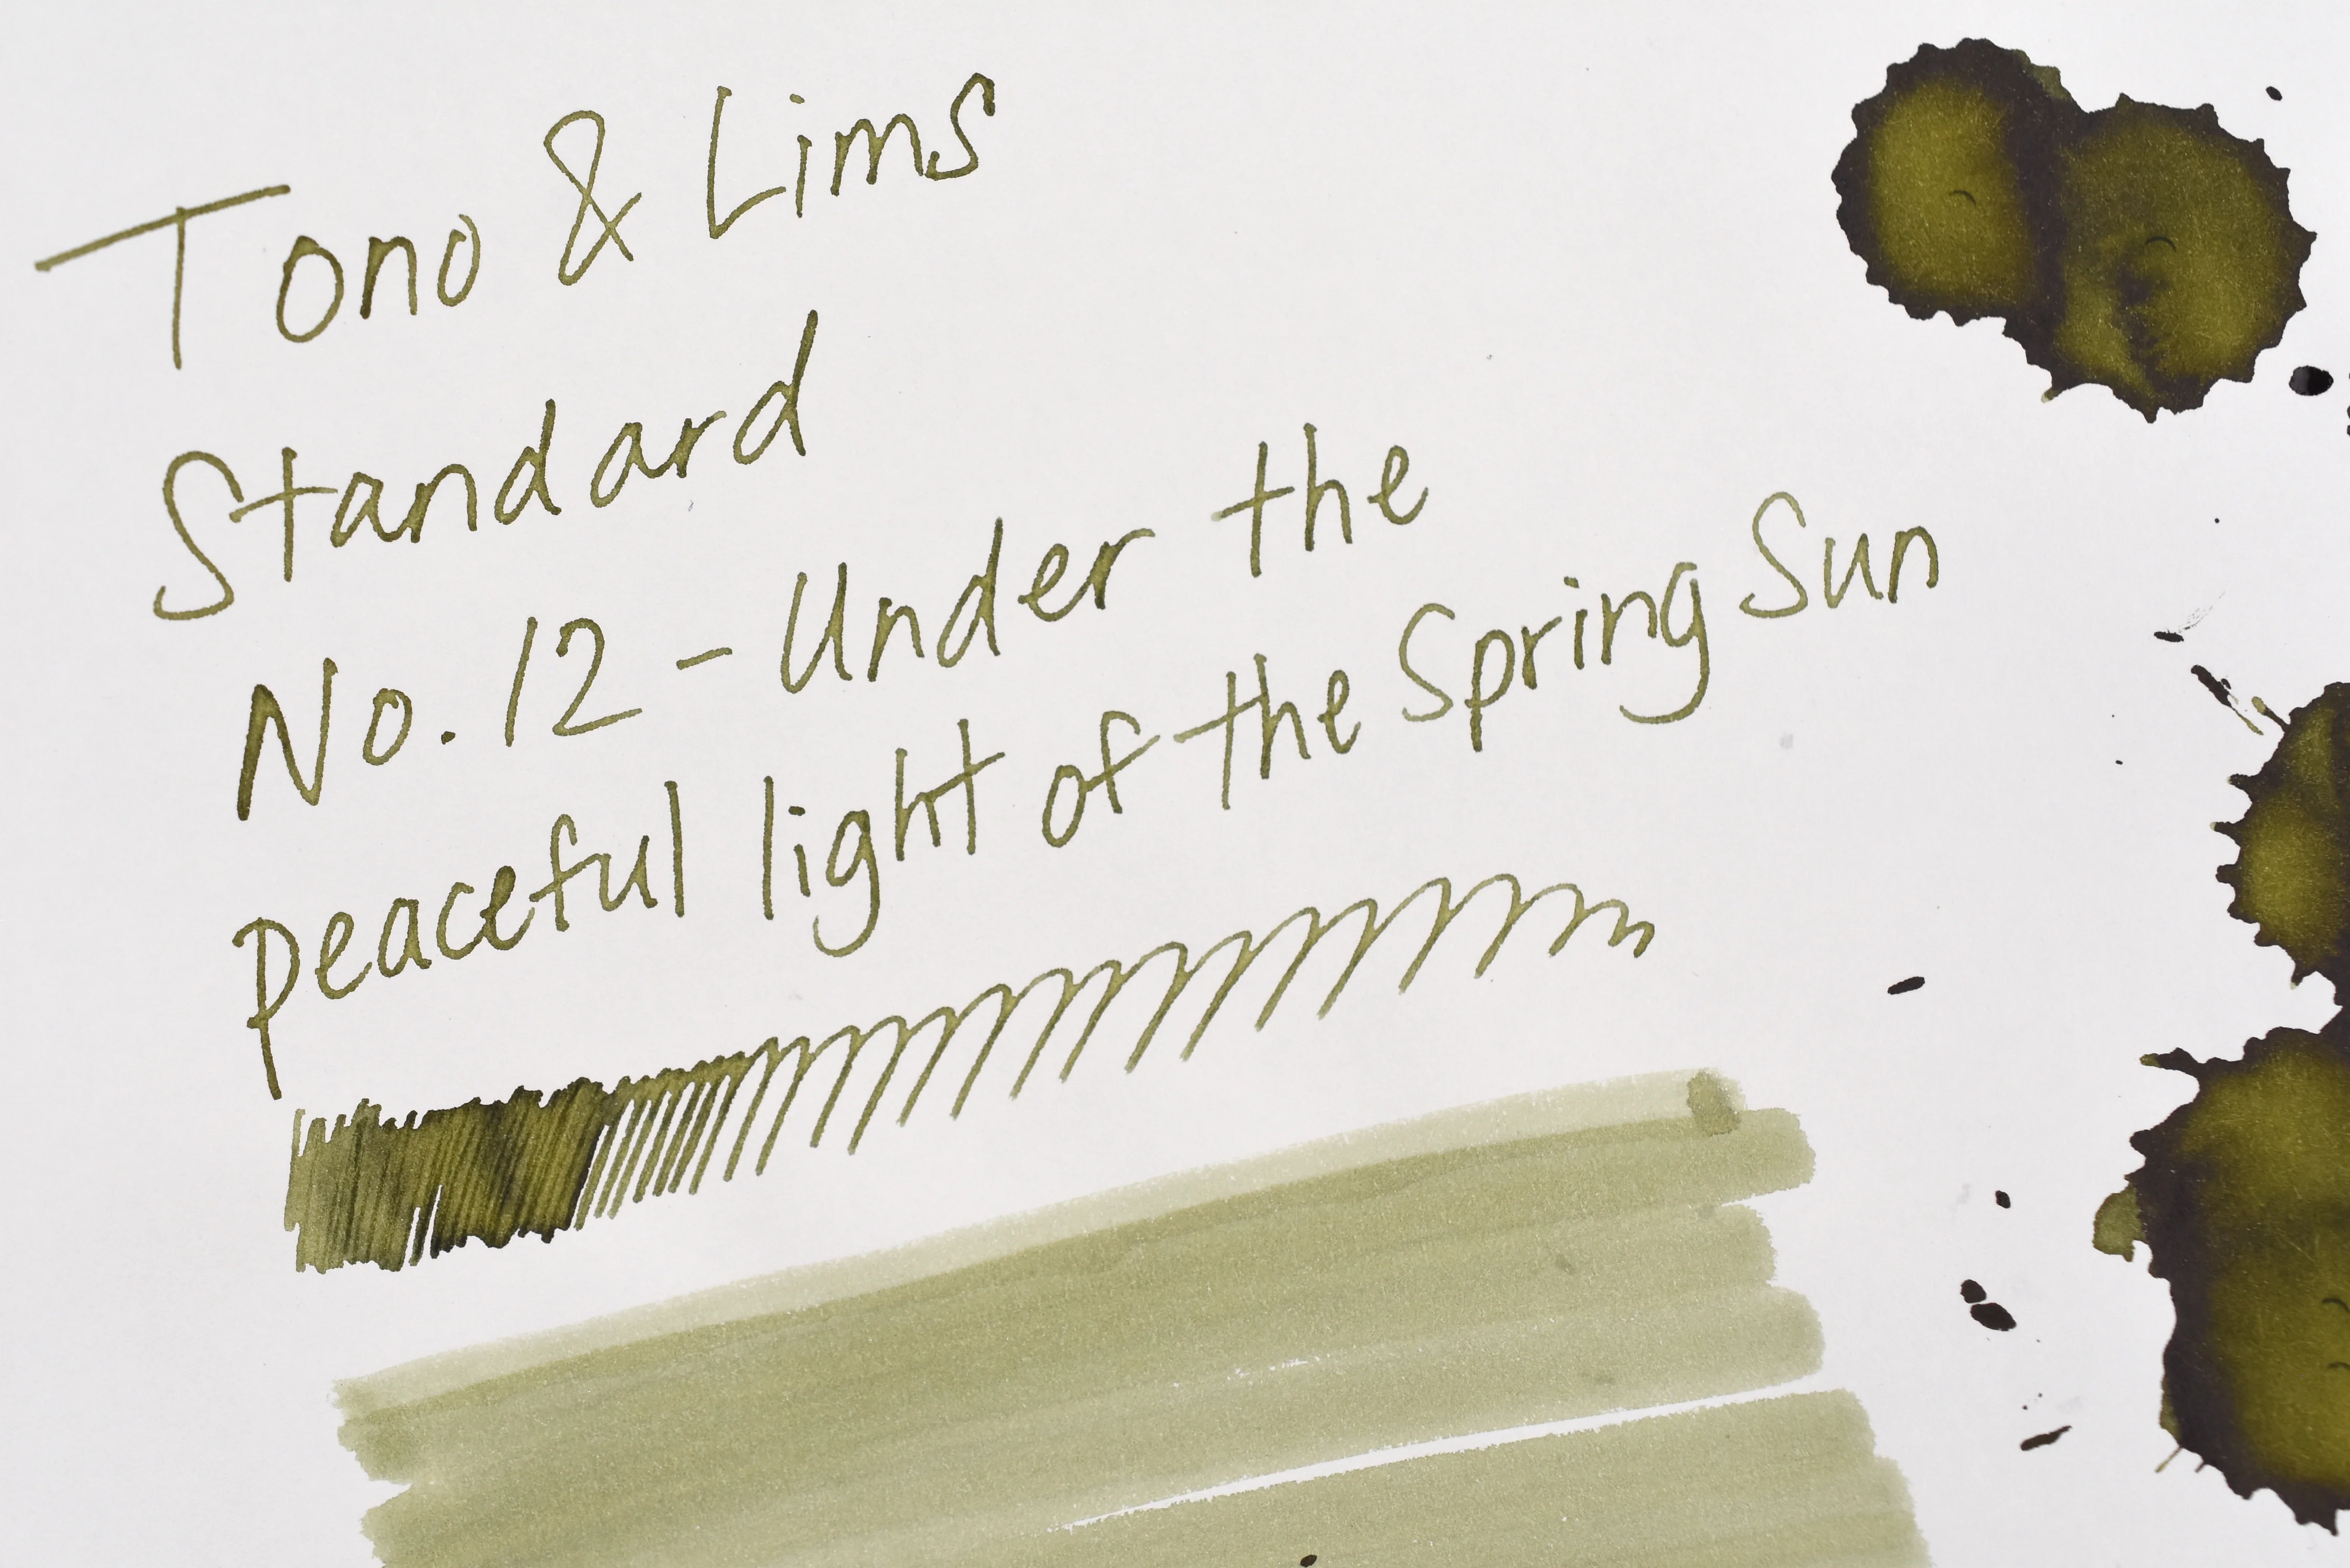 Tono & Lims
Standard
No. 12 - Under the
peaceful light of the Spring Sun